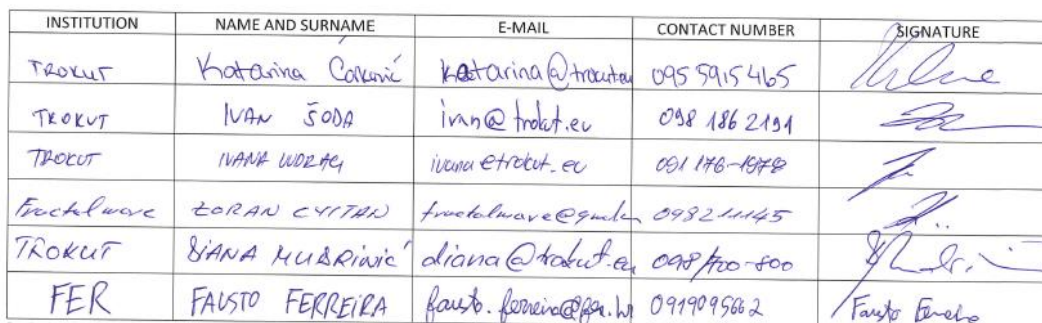 INSTITUTION NAME AND SURNAME E-MAIL CONTACT NUMBER SIGNATURE
TROKUT Katarina katarina@trokut.eu 095 5915 465
TROKUT IVAN ŠODA ivan@trokut.eu 098 186 2191
TROKUT IVANA ivana@trokut.eu 091 176-1978
Fractalwave ZORAN CVITAN 098211145
TROKUT DIANA diana@trokut.eu 098/700-800
FER FAUSTO FERREIRA fausto.ferreira@fer.hr 0919095662 Fausto Ferreira